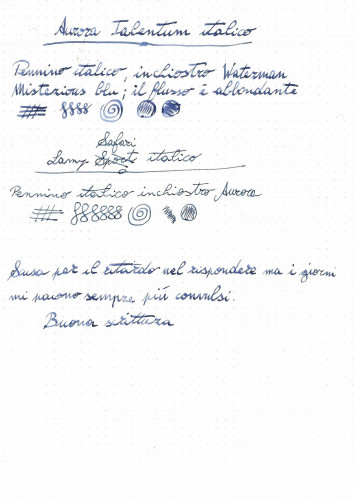 Aurora Talentum italico
Pennino italico, inchiostro Waterman
Misterious blu; il flusso è abbondante
Safari
Lamy Sports italico
Pennino italico inchiostro Aurora
Scusa per il ritardo nel rispondere ma i giorni
mi paiono sempre più convulsi.
Buona scrittura